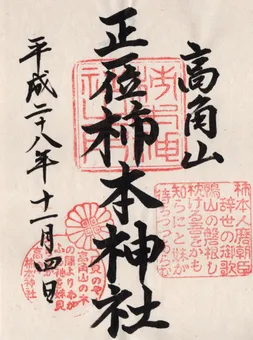 高角山
正一位柿本神社
平成二十八年十一月四日
柿本人麿朝臣
辞世の御歌
鴨山の磐根し
枕ける吾をかも
知らにと妹が
待ちつつあらむ
石見のや
高角山の木
の際よりわが
ふる袖を妹見
柿本神社